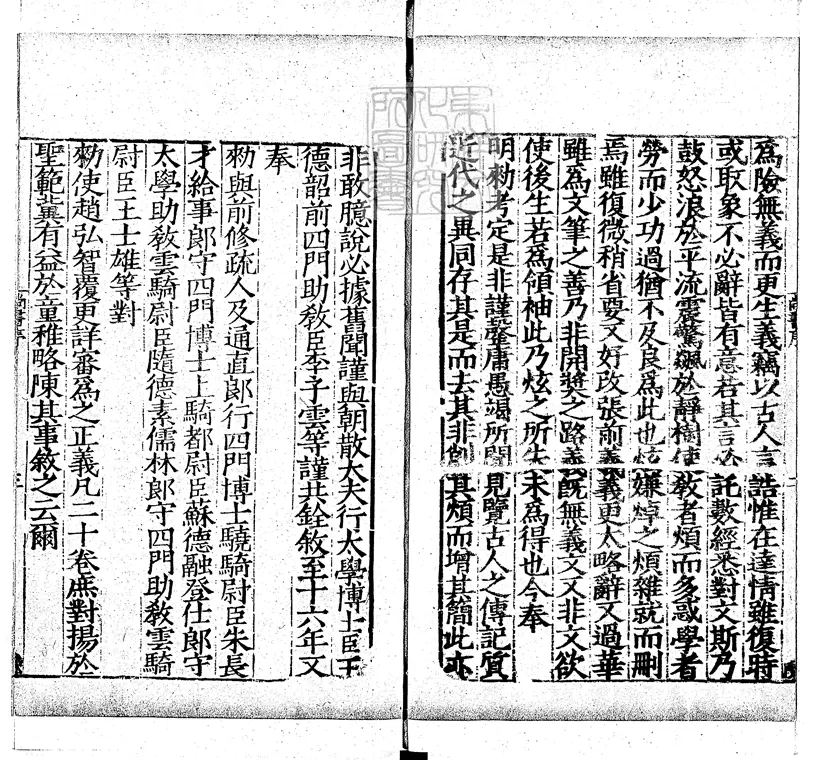 爲險無義而更生義竊以古人言誥惟在達情雖復時
或取象不必辭皆有意若其言必託數經悉對文斯乃
鼓怒浪於平流震驚飆於靜樹使敎者煩而多惑學者
勞而少功過猶不及良爲此也炫嫌焯之煩雜就而刪
焉雖復微稍省要又好改張前義義更太略辭又過華
雖爲文筆之善乃非開奬之路義既無義文又非文欲
使後生若爲領袖此乃炫之所失未爲得也今奉
明勑考定是非謹罄庸愚竭所聞見覽古人之傳記質
近代之異同存其是而去其非削其煩而增其簡此亦
非敢臆說必據舊聞謹與朝散大夫行太學博士臣王
德韶前四門助敎臣李子雲等謹共銓敘至十六年又
奉
勑與前修疏人及通直郎行四門博士驍騎尉臣朱長
才給事郎守四門博士上騎都尉臣蘇德融登仕郎守
太學助敎雲騎尉臣隨德素儒林郎守四門助敎雲騎
尉臣王士雄等對
勑使趙弘智覆更詳審爲之正義凡二十卷庶對揚於
聖範冀有益於童稚略陳其事敘之云爾